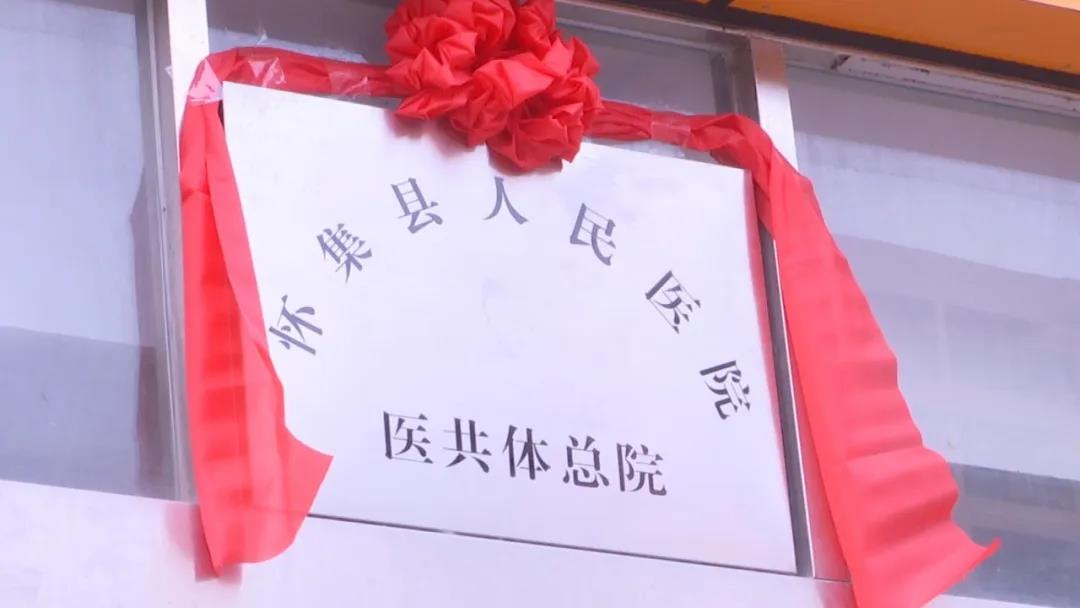 怀集县人民医院
医共体总院